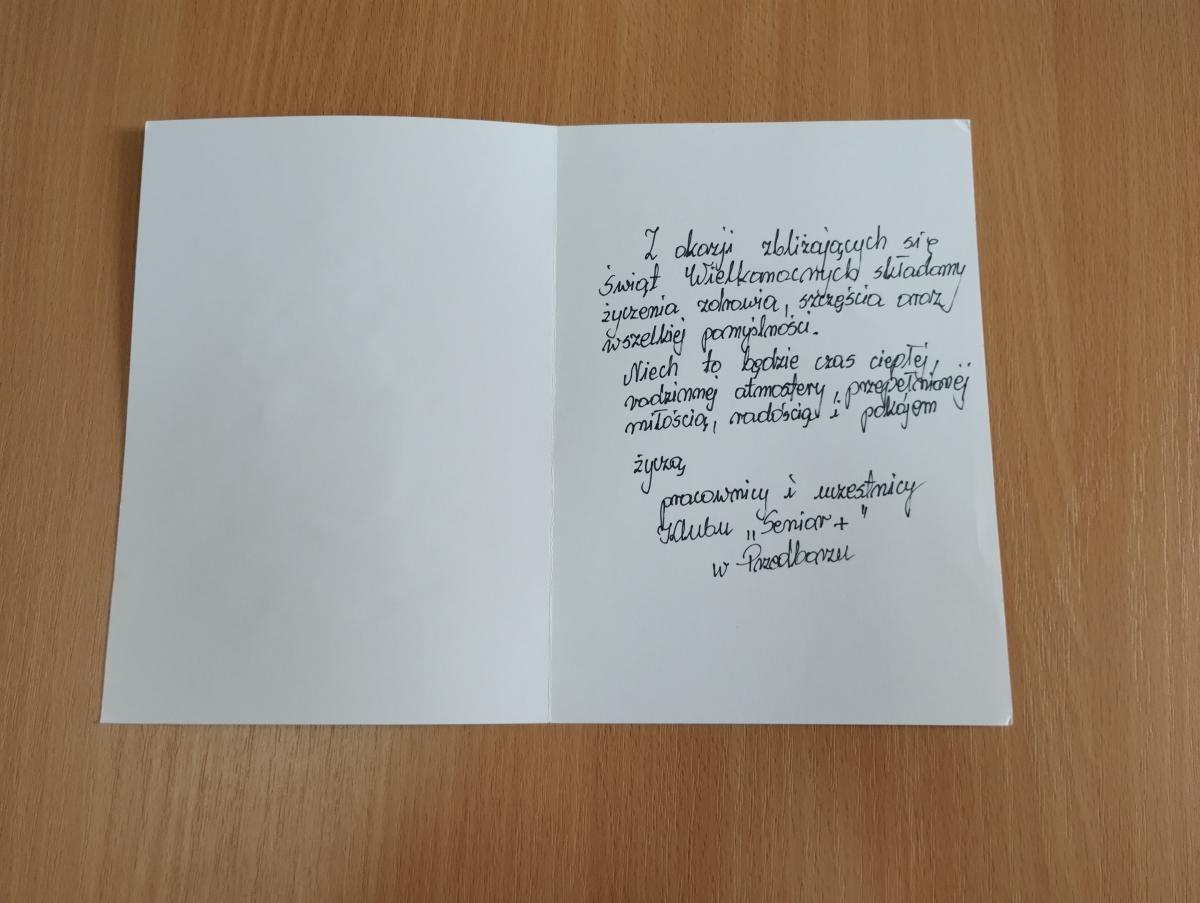 Z okazji zbliżających się
świąt Wielkanocnych składamy
życzenia zdrowia, szczęścia oraz
wszelkiej pomyślności.
Niech to będzie czas ciepłej,
rodzinnej atmosfery, przepełnionej
miłością, radością i pokojem
życzą
pracownicy i uczestnicy
Klubu „Senior+"
w Przedborzu